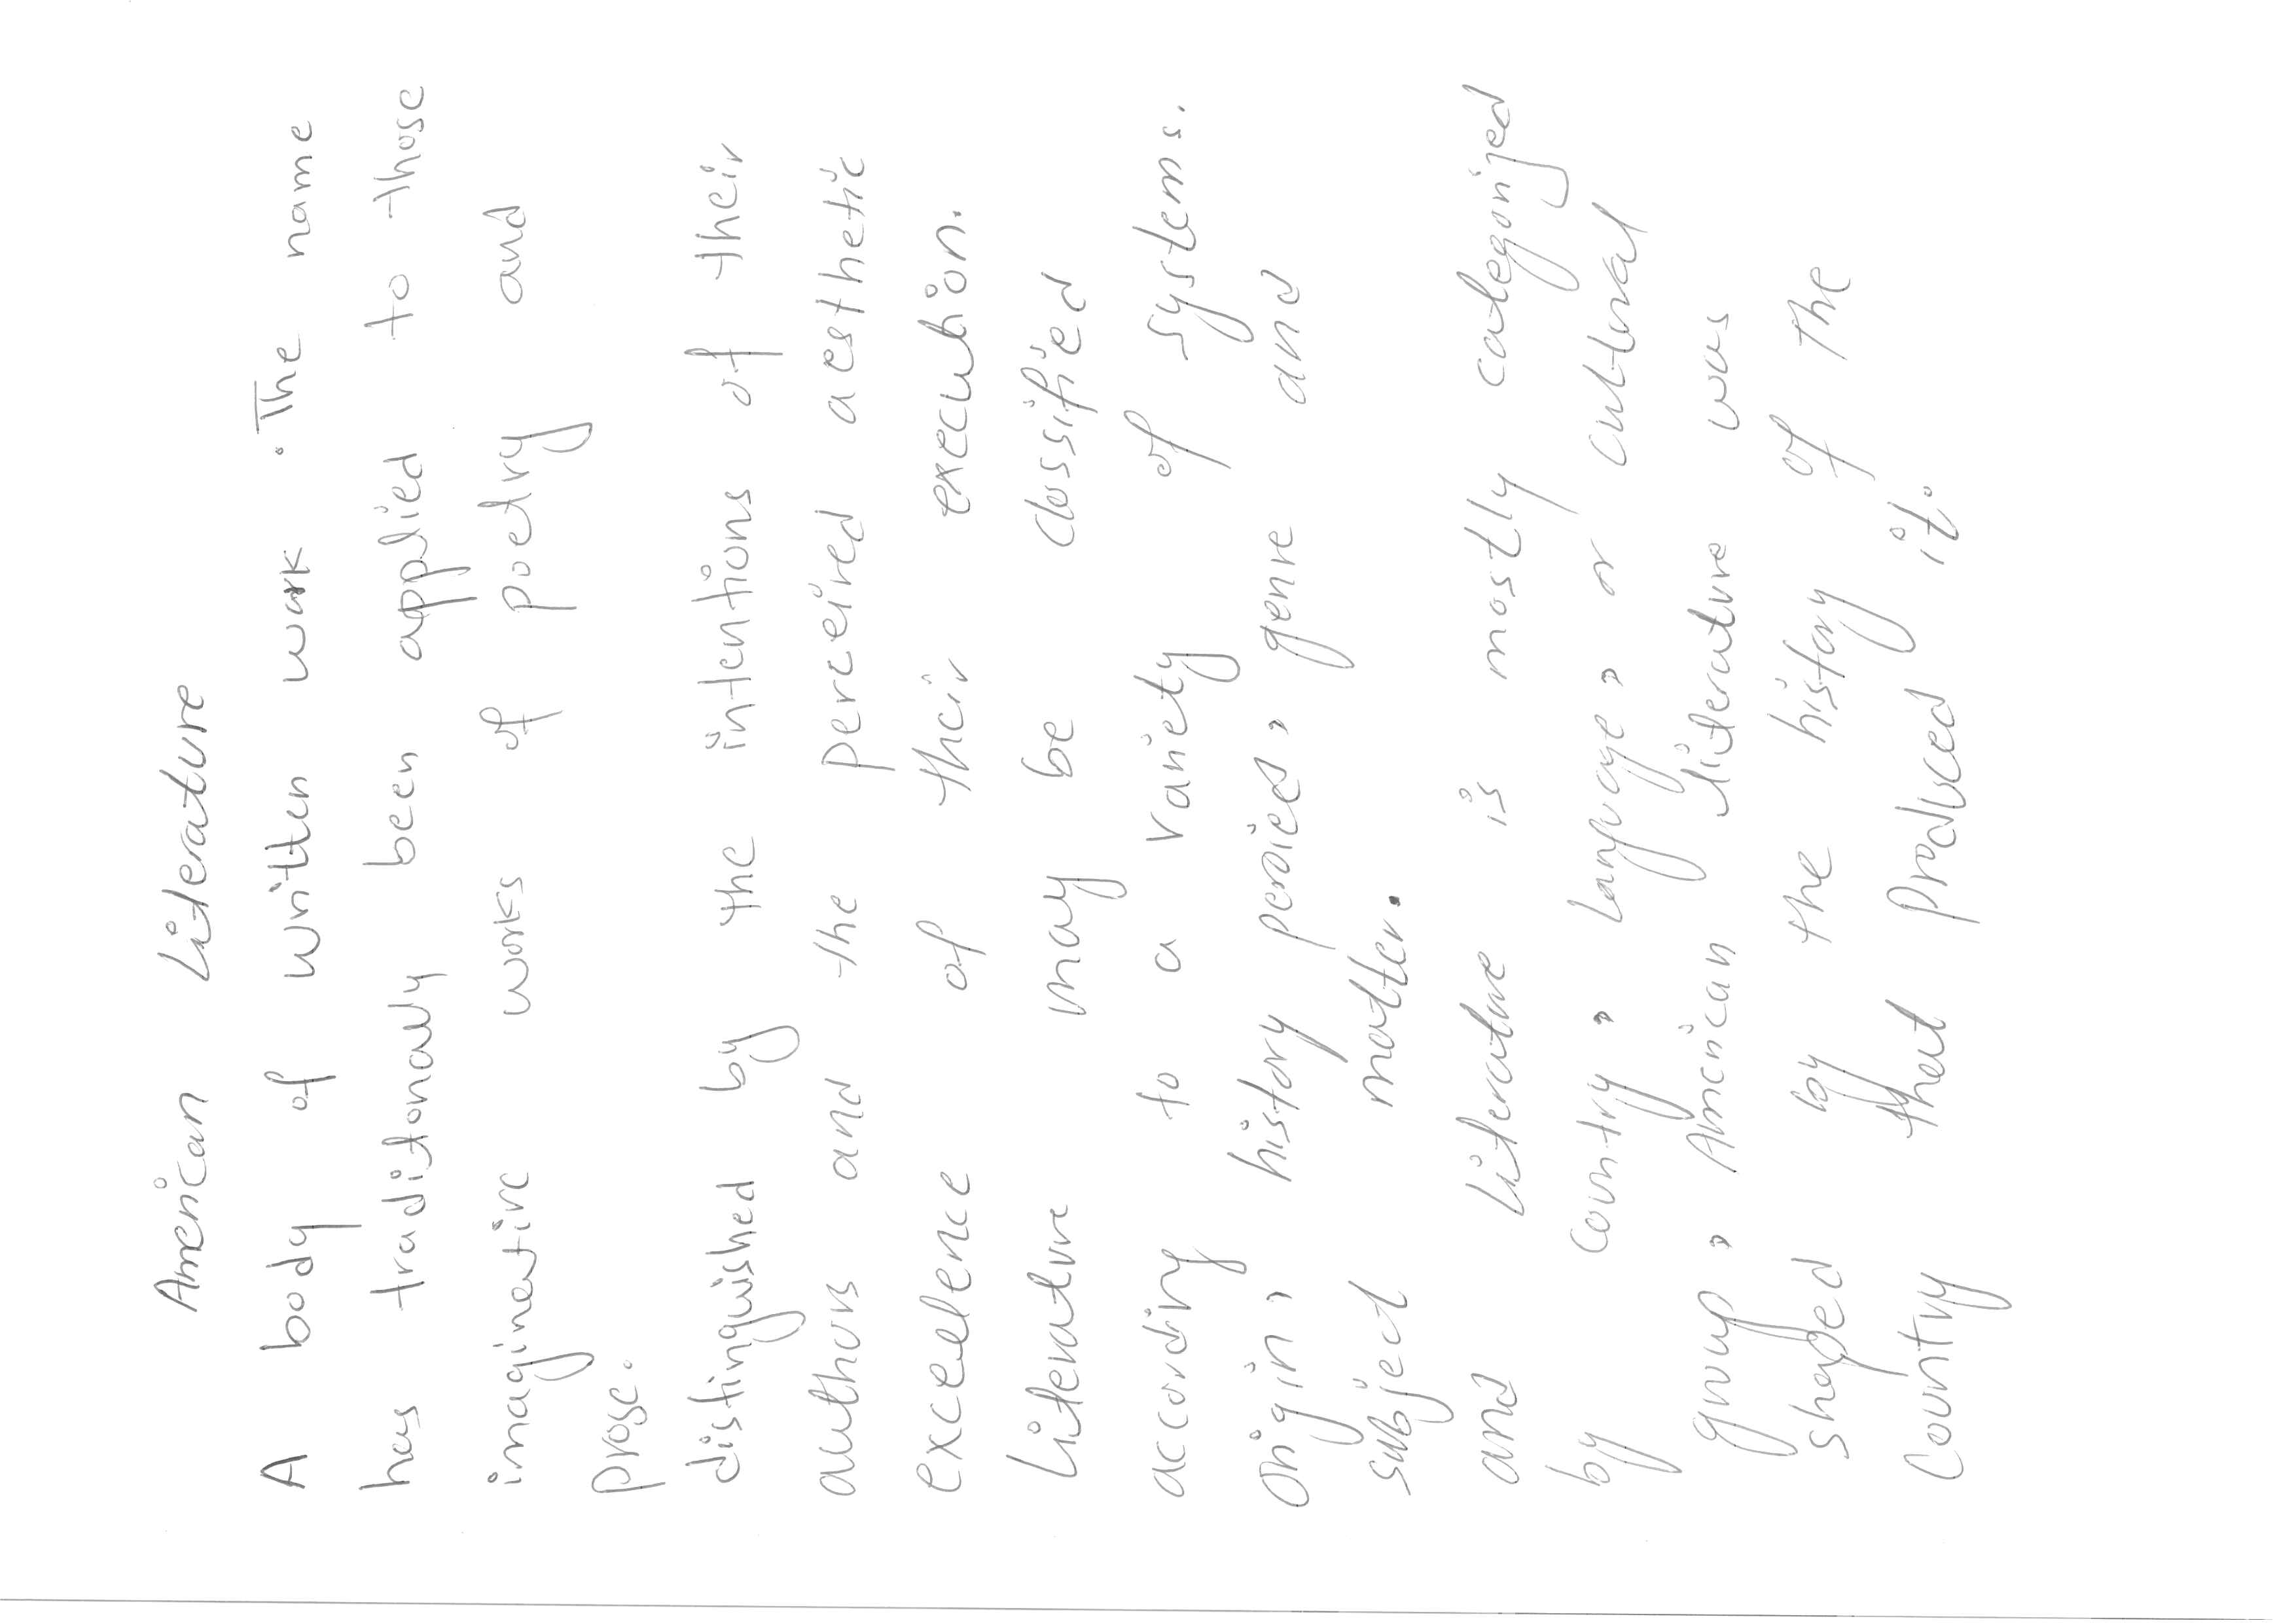 American Literature
A body of written work . The name
has traditonally been applied to those
imaginative works of poetry and
prose.
distinguished by the intentions of their
authors and the perceived aesthetic
exceellence of their execution.
Literature may be classified
according to a variety of systems.
Origin, history peroied, genre and
subject matter.
and literature is mostly categorized
by country, language, or cultural
group, American literature was
shaped by the history of the
Country that produced it.